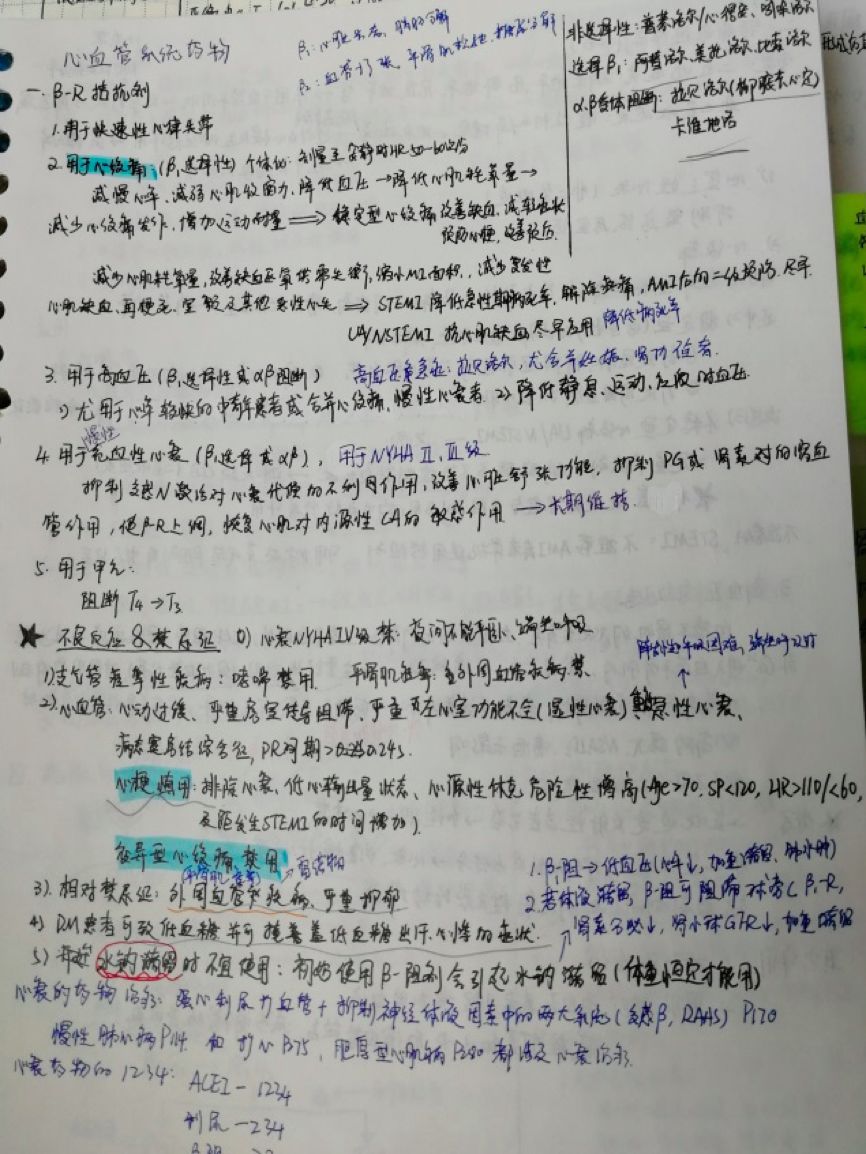 心血管系统药物
β₁:心脏兴奋、脂肪分解
β₂:血管扩张、平滑肌松弛、糖原分解
非选择性:普萘洛尔/心得安、
选择β₁:阿替洛尔、美托洛尔、比索洛尔
α.β受体阻断:拉贝洛尔(柳胺苄心定)
卡维地洛
一. β-R拮抗剂
1.用于快速性心律失常
2.用于心绞痛:(β₁选择性)个体化:剂量至安静时HR50-60次/分
减慢心率、减弱心肌收缩力、降低血压→降低心肌耗氧量→
减少心绞痛发作,增加运动耐量⟹稳定型心绞痛改善缺血,减轻症状
预防心梗,改善预后.
减少心肌耗氧量,改善缺血区氧供需失衡,缩小MI面积,减少复发性
心肌缺血、再梗死、室颤及其他恶性心失⟹STEMI降低急性期病死率,解除疼痛,AMI后的二级预防.尽早
UA/NSTEMI 抗心肌缺血尽早应用 降低病死率
3.用于高血压(β₁选择性或αβ阻断) 高血压急危症:拉贝洛尔,尤合并妊娠、肾功
1)尤用于心率较快的中青年患者或合并心绞痛、慢性心衰者 2)降低静息、运动、应激时血压
慢性
4.用于充血性心衰(β₁选择或αβ),用于NYHA Ⅱ、Ⅲ级
抑制交感N激活对心衰代偿的不利因作用,改善心脏舒张功能,抑制PG或肾素对的缩血
管作用,使β-R上调,恢复心肌对内源性CA的敏感作用→长期维持.
5.用于甲亢:
阻断T₄→T₃
★ 不良反应&禁忌证 0)心衰NYHAIV级禁:夜间不能平卧、端坐呼吸
1)支气管痉挛性疾病:哮喘禁用. 平滑肌痉挛:备外周血管疾病.禁 阵发性呼吸困难,端坐呼吸时
2)心血管:心动过缓、严重房室传导阻滞、严重左心室功能不全(慢性心衰)急性心衰、
病态窦房结综合征,PR间期>0.24s.
心梗慎用:排除心衰、低心输出量状态、心源性休克危险性增高(Age>70,SP<120,HR>110/<60,
及距发生STEMI的时间增加)
变异型心绞痛禁用
3).相对禁忌证:外周血管疾病、严重抑郁
4)DM患者可致低血糖并可掩盖低血糖出汗、心悸的症状.
1.β-阻→低血压(心率↓,加重潴留、肺水肿)
2.若体液潴留,β-阻可阻滞球旁C β₁-R,
肾素分泌↓,肾小球GFR↓,加重潴留
5)水钠潴留时不宜使用:初始使用β-阻剂会引起水钠潴留(体重恒定才能用)
心衰的药物治疗:强心利尿扩血管+抑制神经体液因素中的两大系统(交感β,RAAS) P170
慢性肺心病P114 和扩心B75,肥厚型心肌病P280都涉及心衰治疗.
心衰药物的1234: ACEI-1234
利尿-234